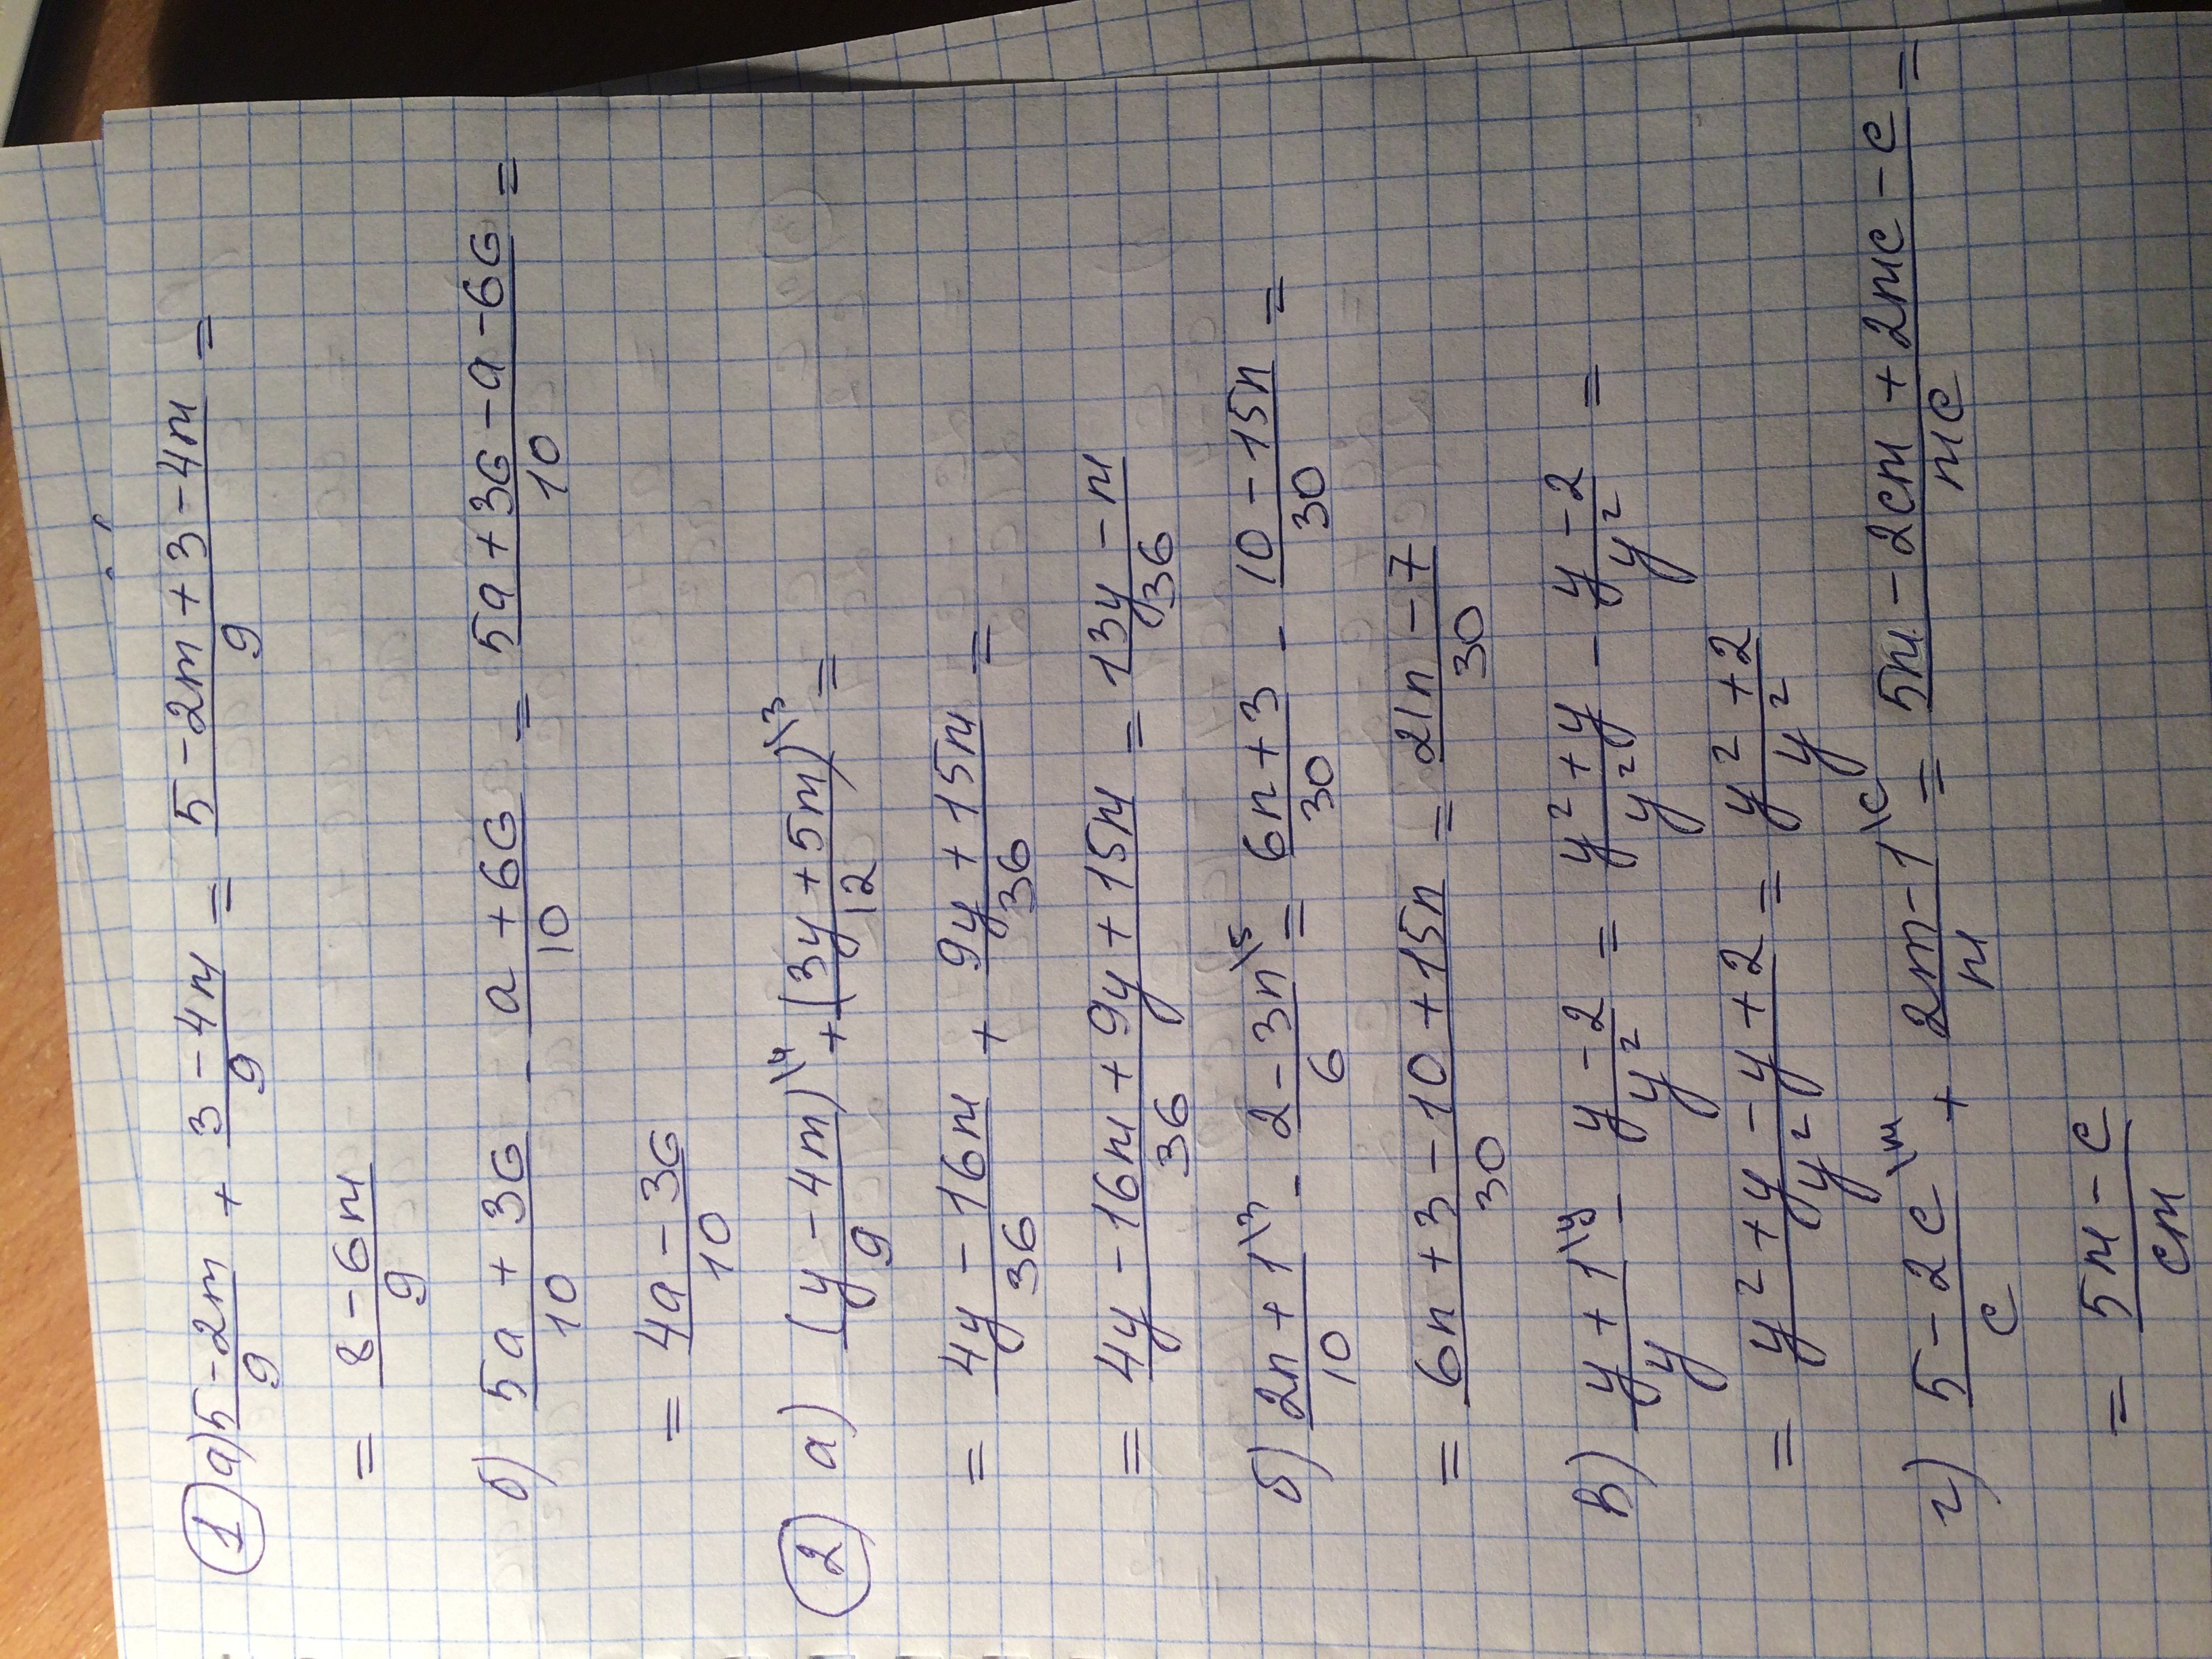 ① а) (5-2m)/9 + (3-4m)/9 = (5-2m+3-4m)/9 =
= (8-6m)/9
б) (5a+3б)/10 - (a+6б)/10 = (5a+3б-a-6б)/10 =
= (4a-3б)/10
② а) (y-4m)^{\4}/9 + (3y+5m)^{\3}/12 =
= (4y-16m)/36 + (9y+15m)/36 =
= (4y-16m+9y+15m)/36 = (13y-m)/36
б) (2n+1)^{\3}/10 - (2-3n)^{\5}/6 = (6n+3)/30 - (10-15n)/30 =
= (6n+3-10+15n)/30 = (21n-7)/30
в) (y+1)^{\y}/y - (y-2)/y² = (y²+y)/y² - (y-2)/y² =
= (y²+y-y+2)/y² = (y²+2)/y²
г) (5-2c)^{\m}/c + (2m-1)^{\c}/m = (5m-2cm+2mc-c)/mc =
= (5m-c)/cm